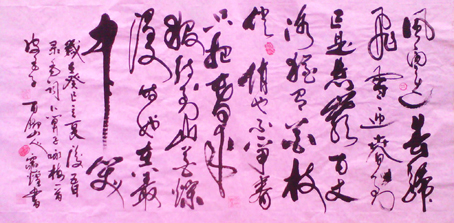 風雨送春歸
飛雪迎春到
已是懸崖百丈
冰猶有花枝
俏俏也不爭春
只把春來
報待到山花爛
漫時她在叢
中笑
歲在癸巳之夏
毛詞卜算子咏梅一首
書